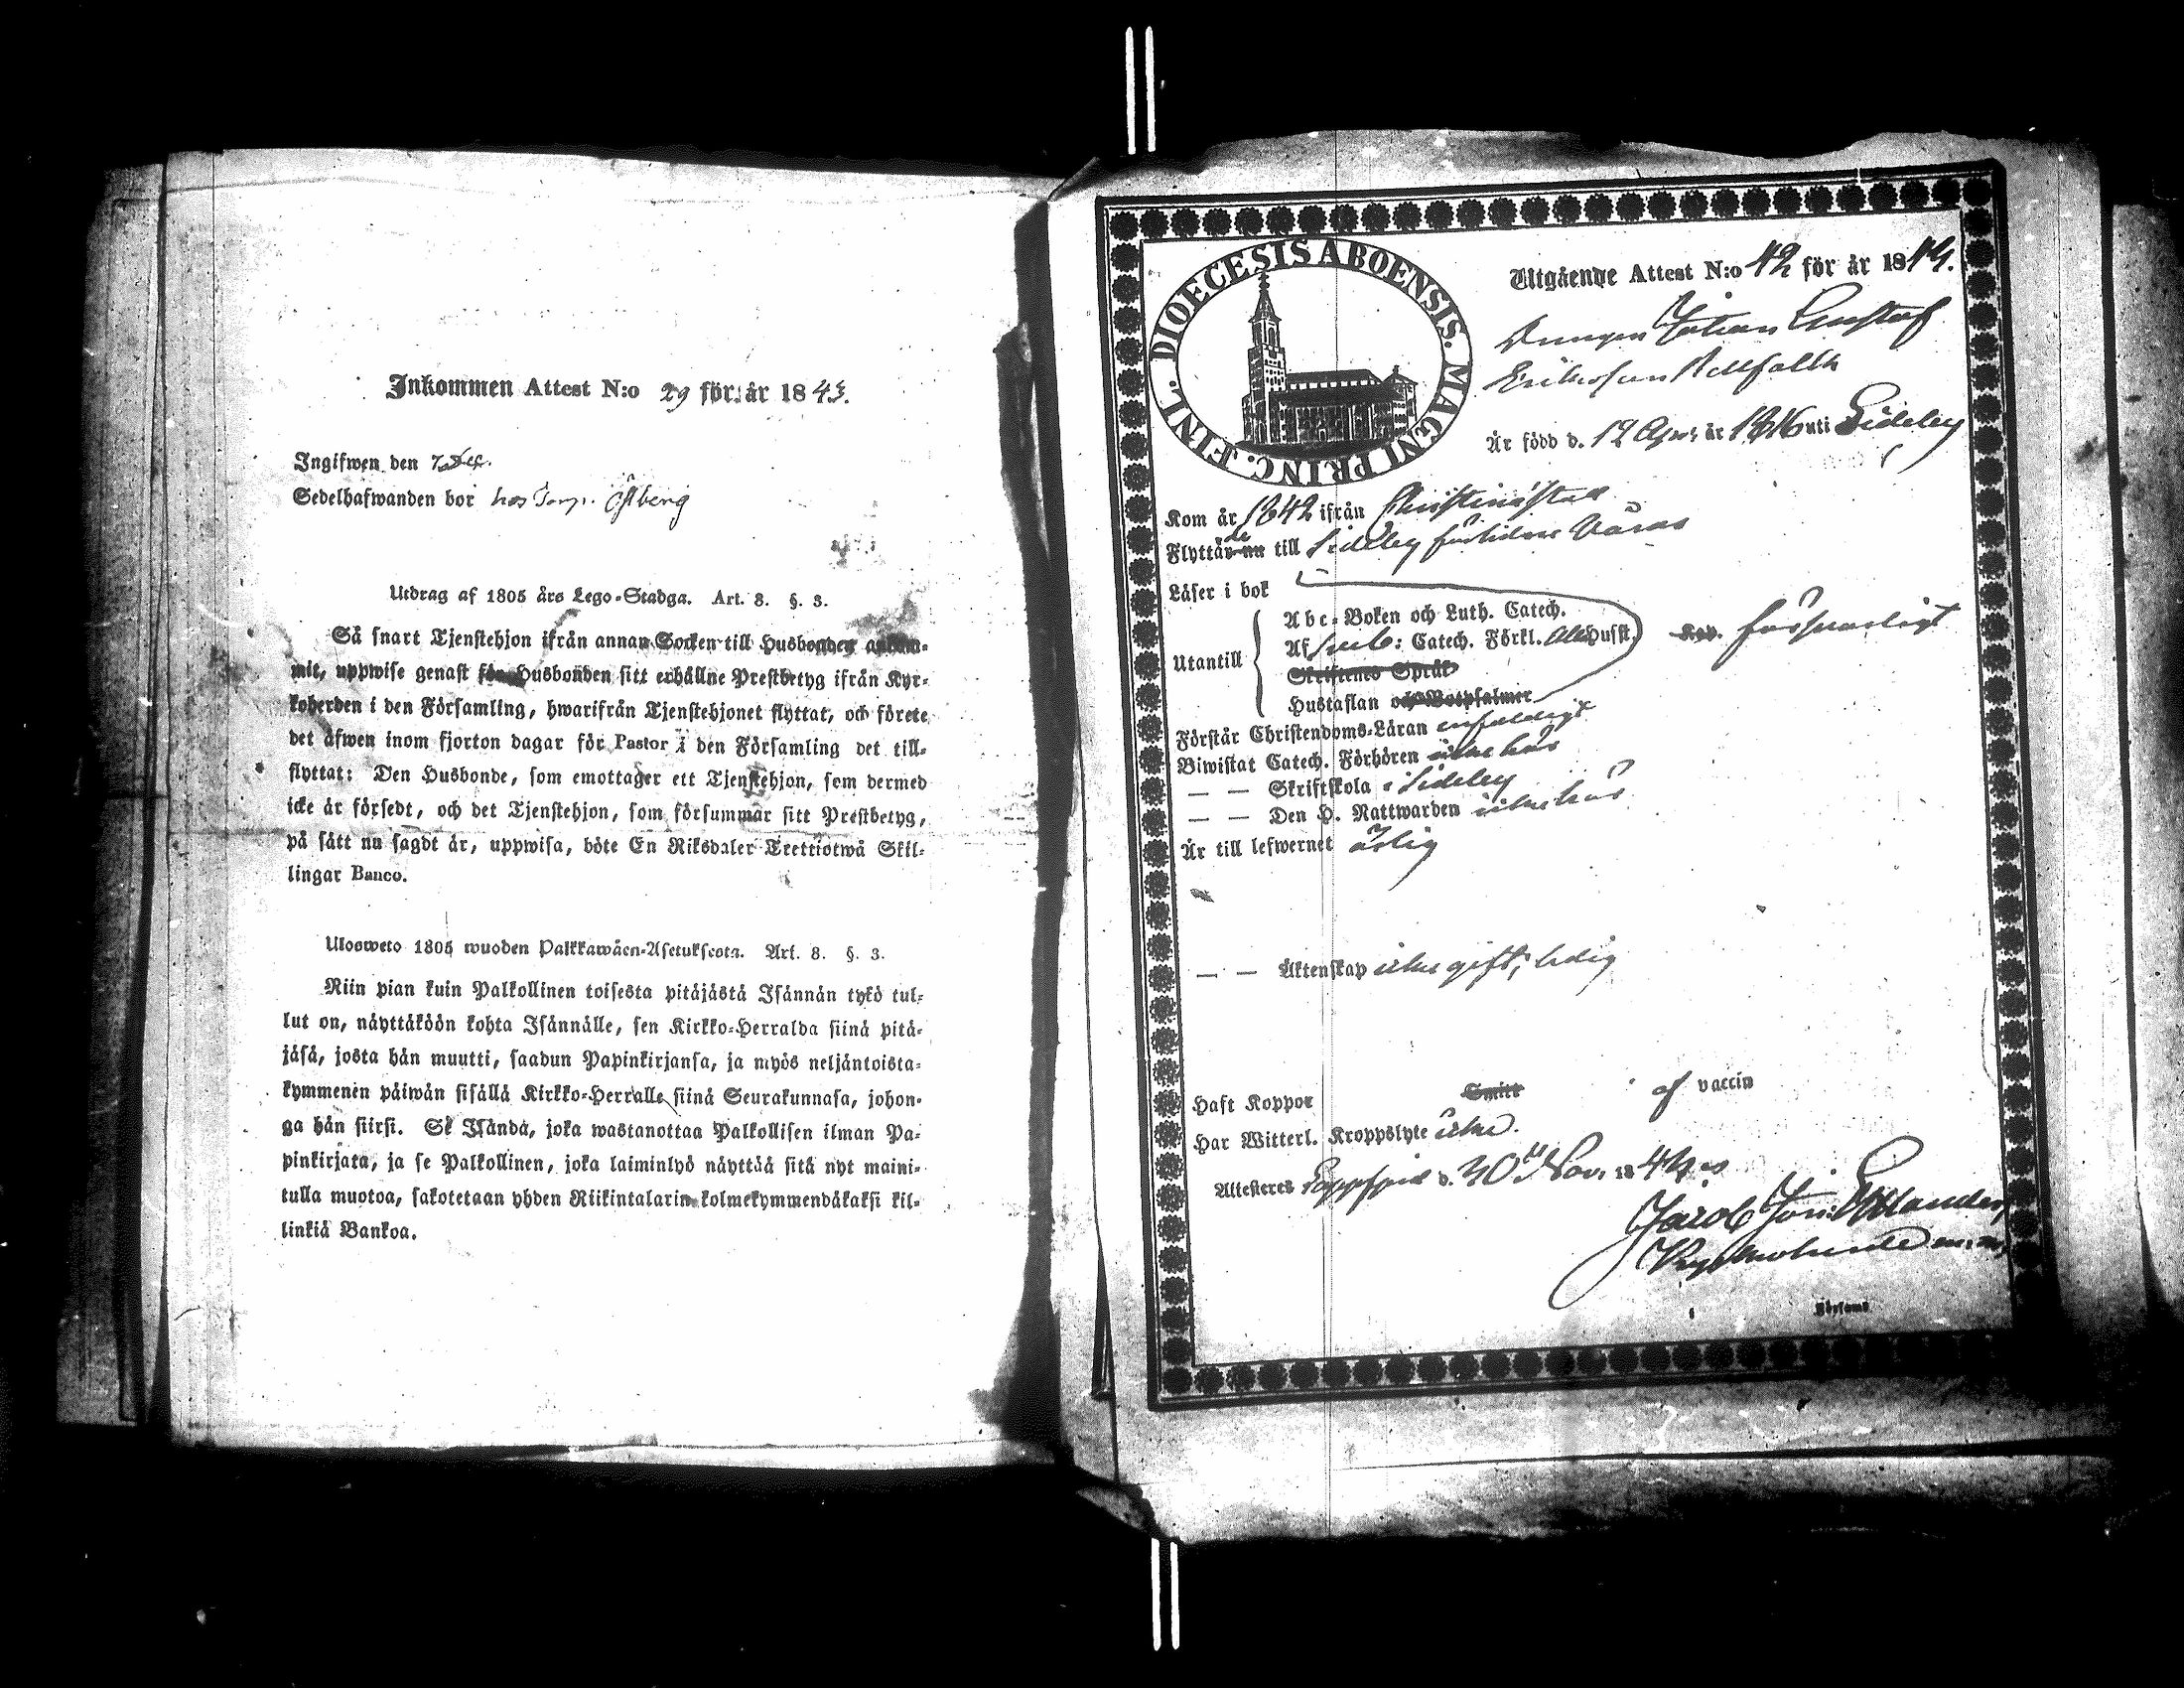 Inkommen Attest N:o 29 för år 1843.
Ingifwen den 7 Dec.
Sedelhafwanden bor hos Torp. Östberg
Utdrag af 1805 års Lego-Stadga. Art. 8. §. 3.
Så snart Tjenstehjon ifrån annan Socken till Husbonden ankom-
mit, uppwise genast för Husbonden sitt erhållne Prestbetyg ifrån Kyr-
koherden i den Församling, hwarifrån Tjenstehjonet flyttat, och förete
det äfwen inom fjorton dagar för Pastor i den Församling det till-
flyttat: Den Husbonde, som emottager ett Tjenstehjon, som dermed
icke är försedt, och det Tjenstehjon, som försummar sitt Prestbetyg,
på sätt nu sagdt är, uppwisa, böte En Riksdaler Trettiotwå Skil-
lingar Banco.
Ulosweto 1805 wuoden Palkkawäen-Asetuksesta. Art. 8. §. 3.
Niin pian kuin Palkollinen toisesta pitäjästä Isännän tykö tul-
lut on, näyttäköön kohta Isännälle, sen Kirkko-Herralda siinä pitä-
jäsä, josta hän muutti, saadun Papinkirjansa, ja myös neljäntoista-
kymmenen päiwän sisällä Kirkko-Herralle siinä Seurakunnasa, johon-
ga hän siirsi. Se Isändä, joka wastanottaa Palkollisen ilman Pa-
pinkirjata, ja se Palkollinen, joka laiminlyö näyttää sitä nyt maini-
tulla muotoa, sakotetaan yhden Riikintalarin kolmekymmendäkaksi kil-
linkiä Bankoa.
DIOECESIS ABOENSIS. MAGNI PRINC. FINL.
Utgående Attest N:o 42 för år 184
Drengen Johan Gustaf
Eriksson
Är född d. 12 Apr: år 1816 uti Sideby
Kom år 1842 ifrån Christinestad
Flyttade till Sideby förliden Våras
Läser i bok
Abc-Boken och Luth. Catech.
Utantill Af Catech. Förkl. Husst. Kap. försvarligt
Skriftenes Språk
Hustaflan och Botpsalmer
Förstår Christendoms-Läran enfaldigt
Biwistat Catech. Förhören icke här
— — Skriftskola i Sideby
— — Den H. Nattwarden icke här
Är till lefwernet ärlig
— — Äktenskap icke gift, ledig
Haft Koppor Smitt af vaccin
Har Witterl. Kroppslyte icke.
Attesteras Lappfjerd d. 30 Nov. 184
Jacob Joh:
Kyrkoherde m.m.
Församl